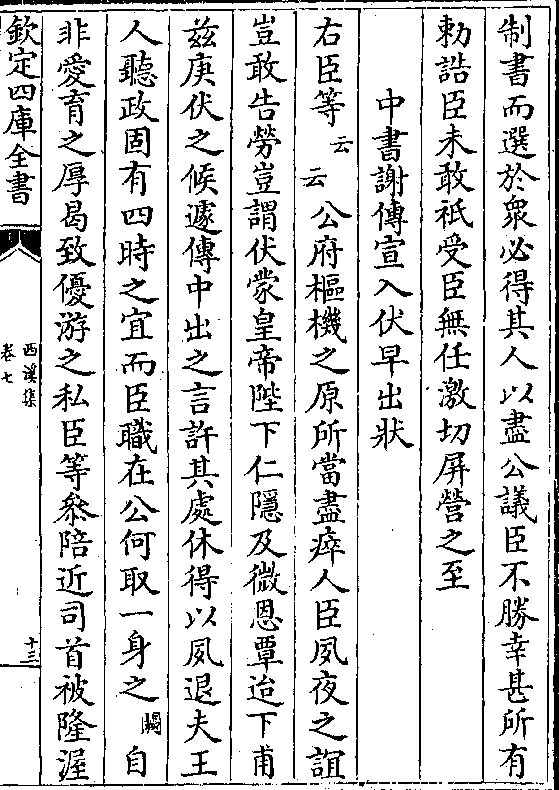 制書而選於衆必得其人以盡公議臣不勝幸甚所有
勅誥臣未敢祇受臣無任激切屏營之至
中書謝傳宣入伏早出狀
右臣等云云公府樞機之原所當盡瘁人臣夙夜之誼
豈敢告勞豈謂伏蒙皇帝陛下仁隱及微恩覃迨下甫
兹庚伏之候遽傳中出之言許其處休得以夙退夫王
人聽政固有四時之宜而臣職在公何取一身之闕自
非愛育之厚曷致優游之私臣等叅陪近司首被隆渥
欽定四庫全書
西溪集
卷七
十三